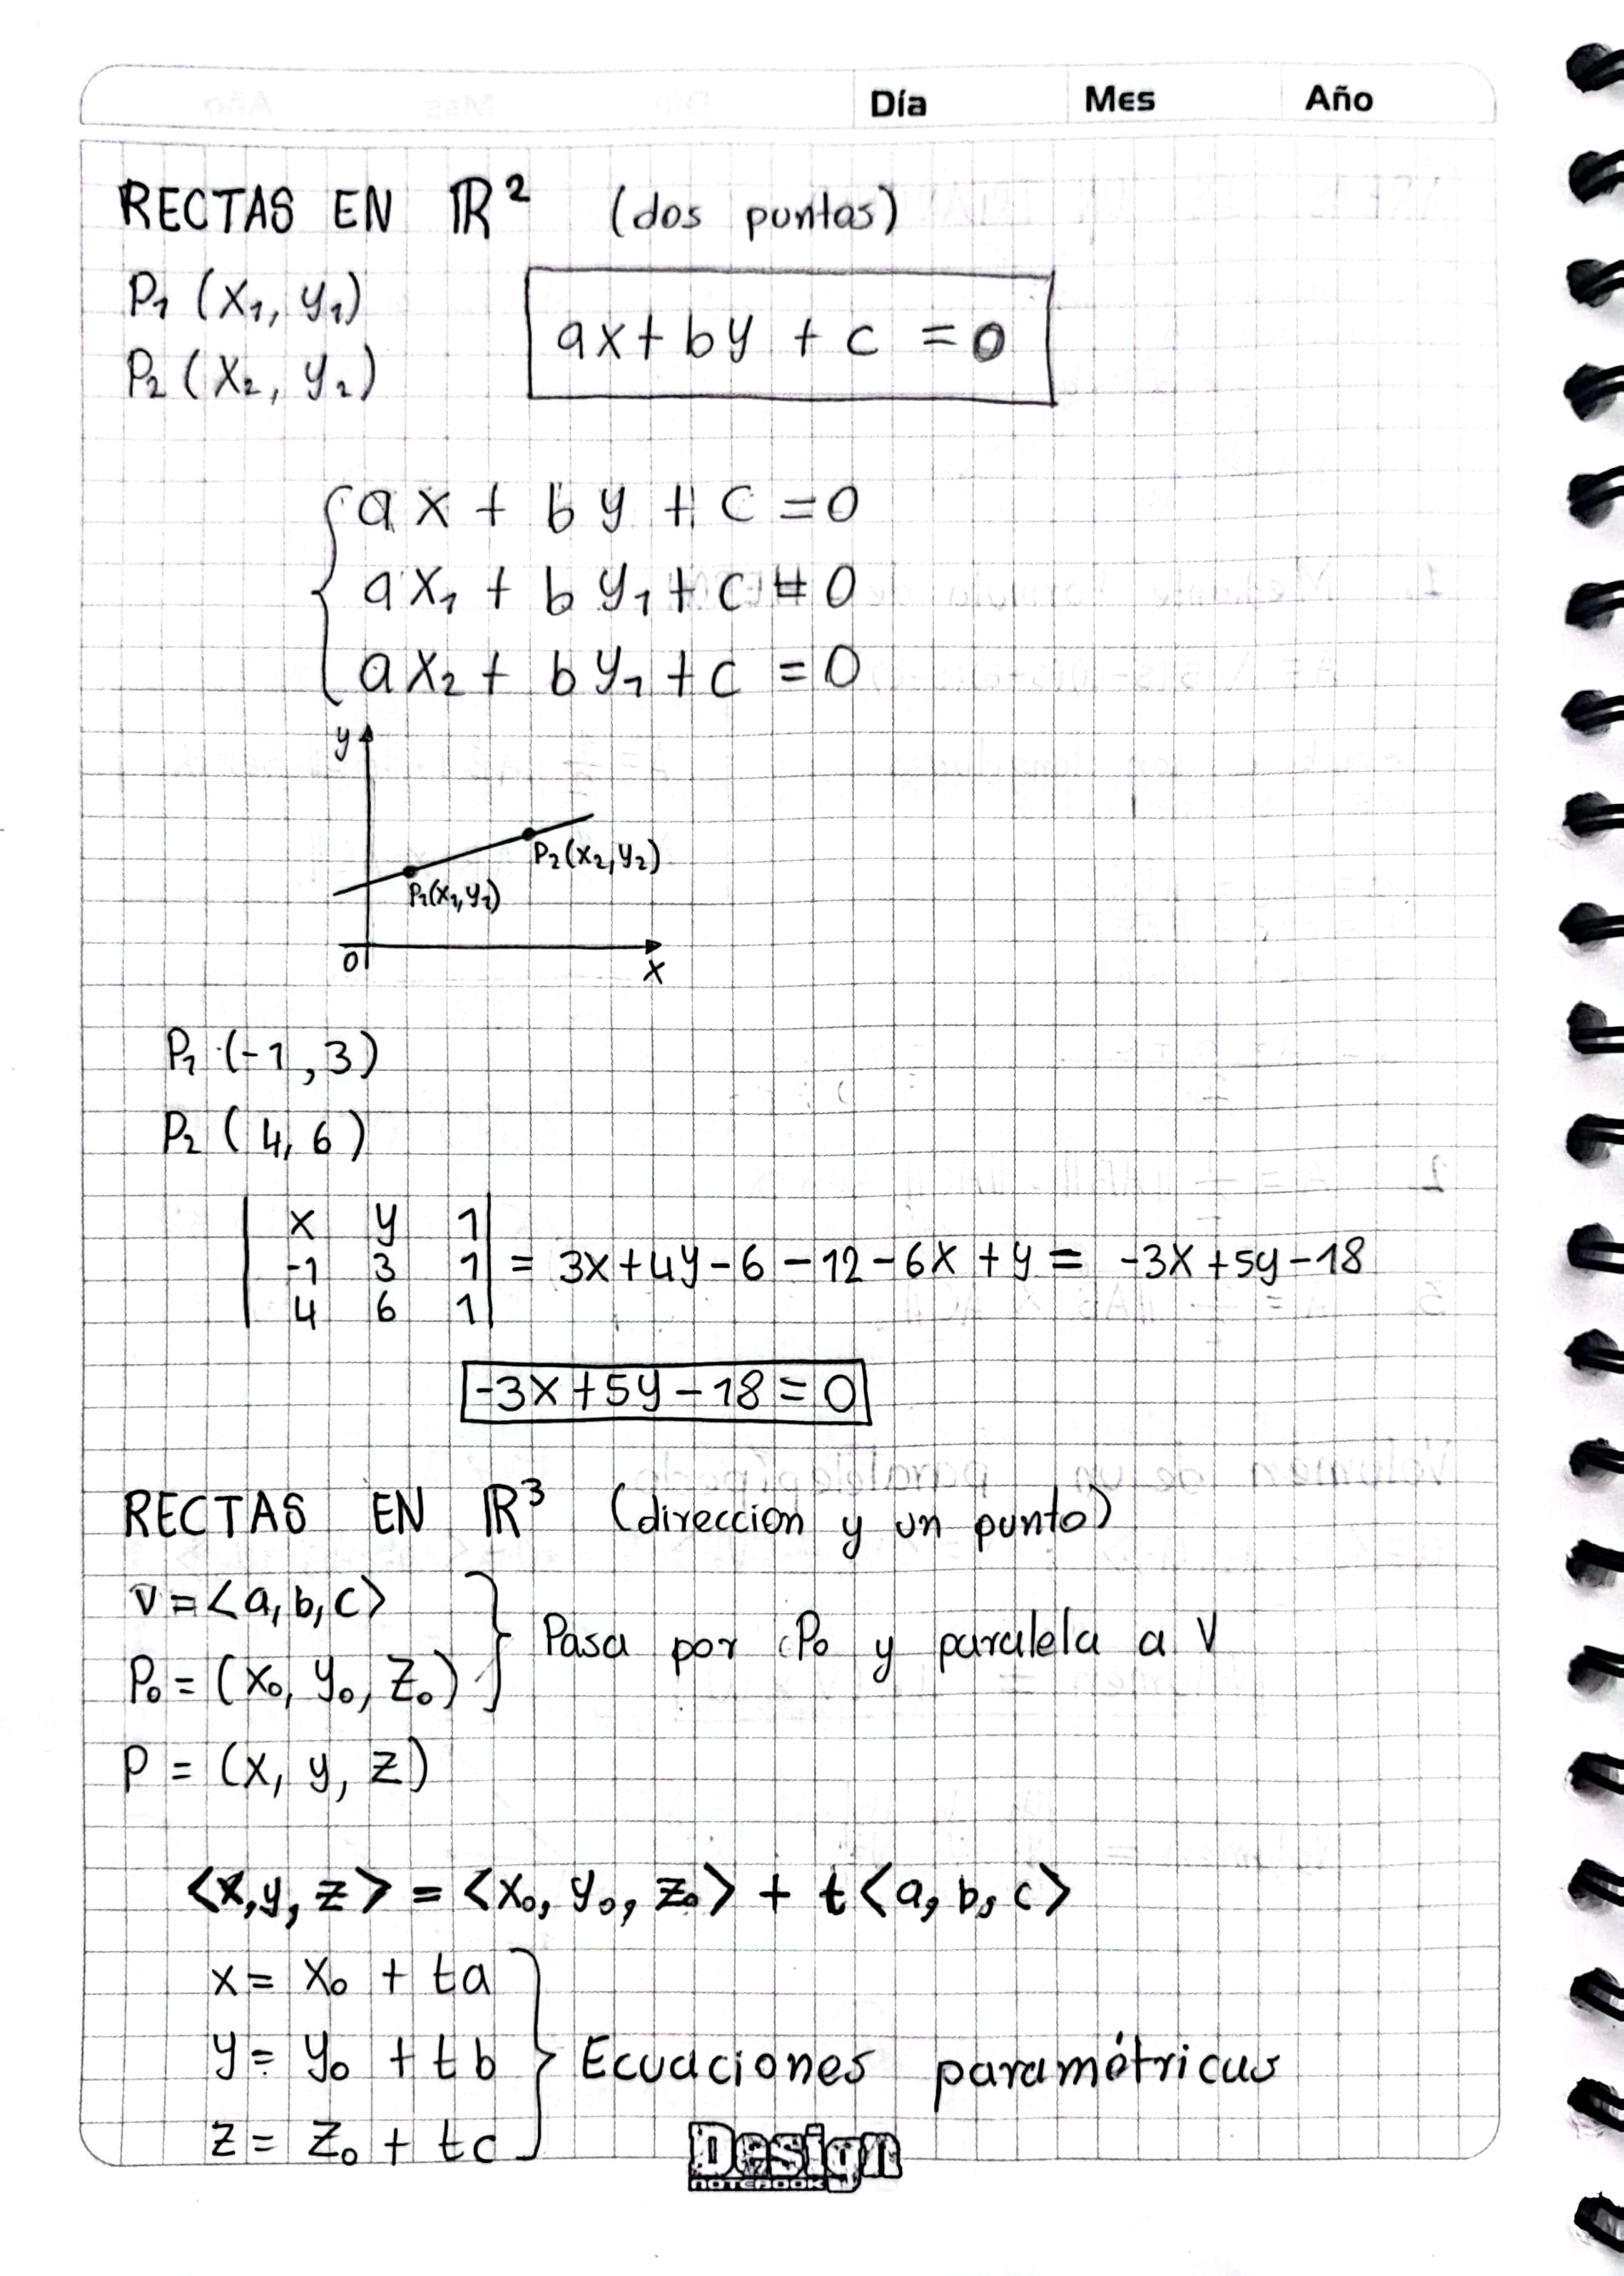 Día Mes Año
RECTAS EN ℝ² (dos puntos)
P₁ (x₁, y₁)
ax + by + c = 0
P₂ (x₂, y₂)
ax + by + c = 0
ax₁ + by₁ + c = 0
ax₂ + by₁ + c = 0
y
P₂(x₂, y₂)
P₁(x₁, y₁)
0
x
P₁ (-1, 3)
P₂ (4, 6)
x y 1
-1 3 1 = 3x + 4y - 6 - 12 - 6x + y = -3x + 5y - 18
4 6 1
-3x + 5y - 18 = 0
RECTAS EN ℝ³ (direccion y un punto)
v = <a, b, c>
Pasa por P₀ y paralela a V
P₀ = (x₀, y₀, z₀)
P = (x, y, z)
<x, y, z> = <x₀, y₀, z₀> + t <a, b, c>
x = x₀ + ta
y = y₀ + tb Ecuaciones paramétricas
z = z₀ + tc
Design
NOTEBOOK